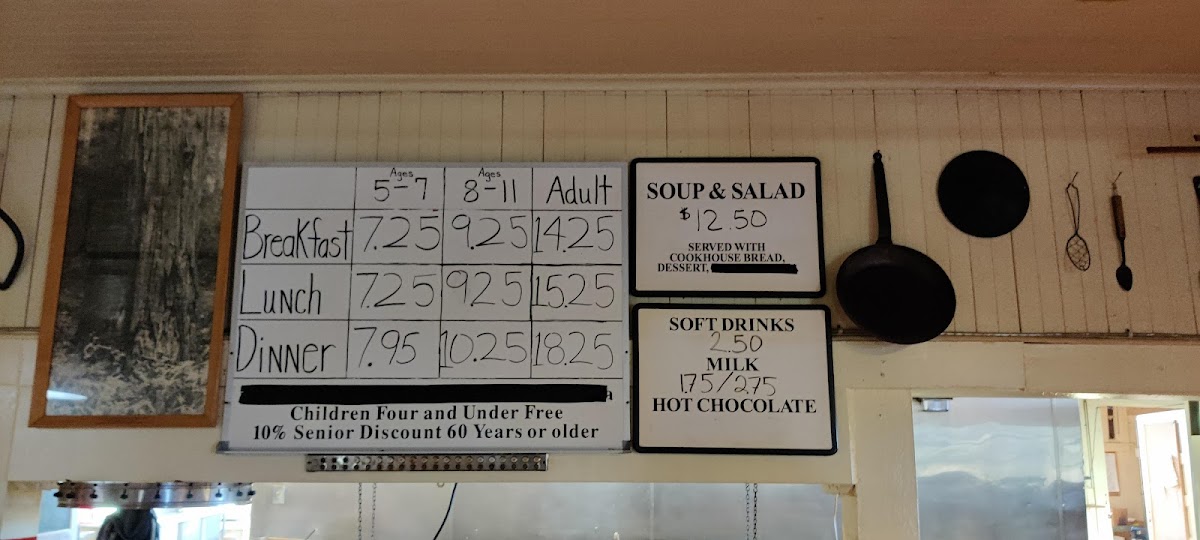 Ages Ages
5-7 8-11 Adult
Breakfast 7.25 9.25 14.25
Lunch 7.25 9.25 15.25
Dinner 7.95 10.25 18.25
Children Four and Under Free
10% Senior Discount 60 Years or older
SOUP & SALAD
$12.50
SERVED WITH
COOKHOUSE BREAD,
DESSERT,
SOFT DRINKS
2.50
MILK
1.75/2.75
HOT CHOCOLATE